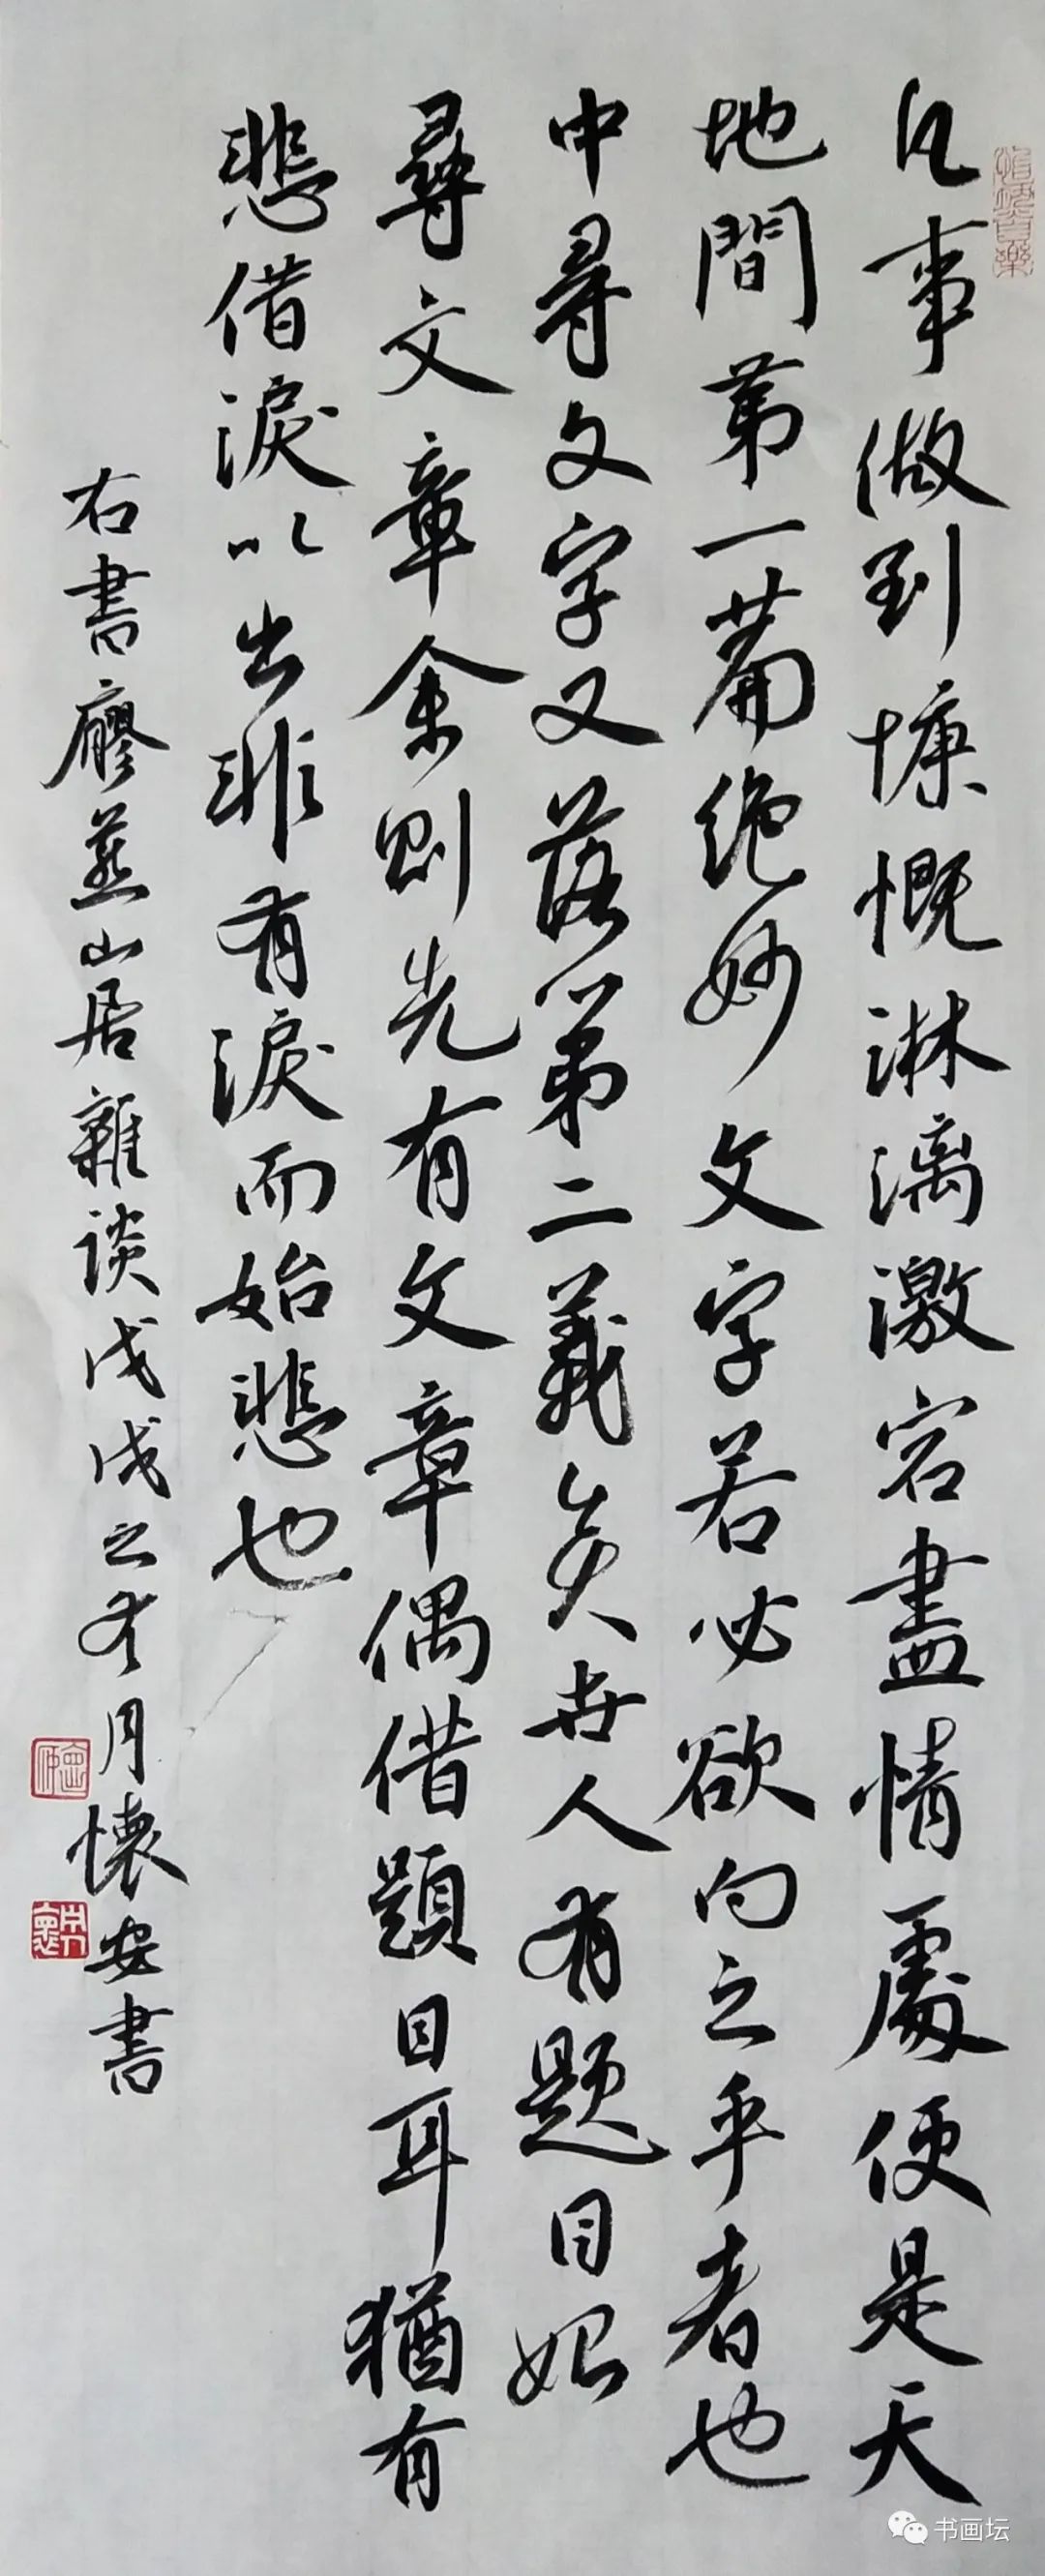 凡事做到慷慨淋漓激宕盡情處便是天
地間第一篇絶妙文字若必欲向之乎者也
中尋文字又落第二義矣世人有題目始
尋文章余則先有文章偶借題目耳猶有
悲借淚以出非有淚而始悲也
右書廖燕山居雜談戊戌之冬月懷安書
书画坛